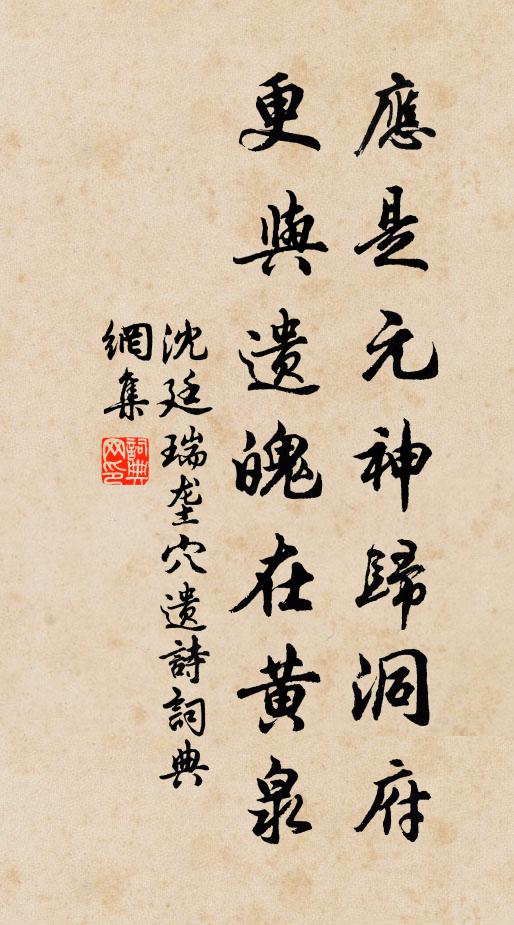 應是元神歸洞府
更與遺魄在黃泉
沈廷瑞垄穴遺詩詞典
網集
詞典
网印